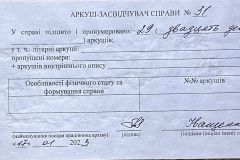 АРКУШ-ЗАСВІДЧУВАЧ СПРАВИ № 31
У справі підшито і пронумеровано: 29 двадцять
) аркушів,
у т. ч.: літерні аркуші
пропущені номери:
+ аркушів внутрішнього опису
Особливості фізичного стану та формування справи
№№ аркушів
(найменування посади працівника архіву)
(підпис)
01 2023